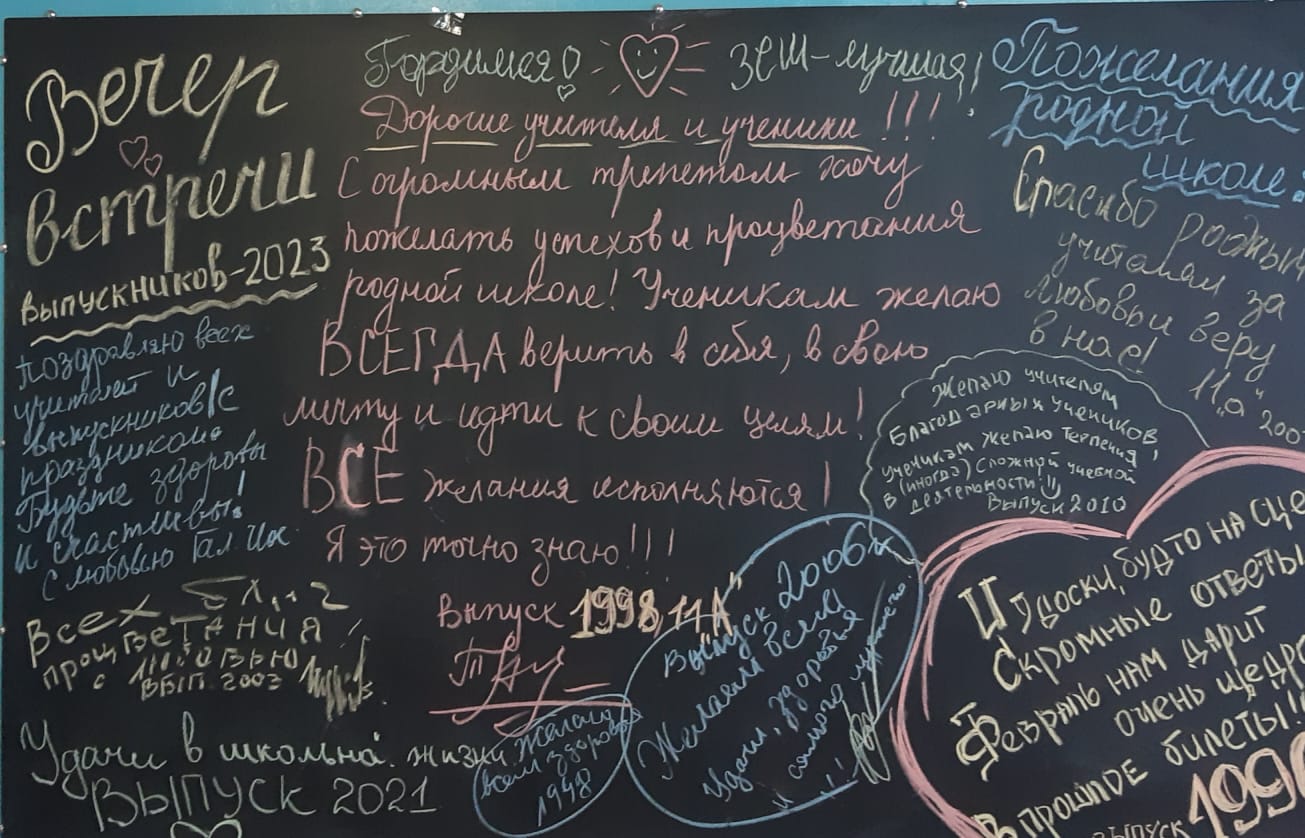 Вечер
встречи
выпускников-2023
Поздравляю всех
учителей и
выпускников с
праздником.
Будьте здоровы
и счастливы!
С любовью Гал. Ив.
Всех благ
процветания
с любовью
вып. 2003
Удачи в школьной жизни
ВЫПУСК 2021
Гордимся! ЗСШ-лучшая!
Дорогие учителя и ученики!!!
С огромным трепетом хочу
пожелать успехов и процветания
родной школе! Ученикам желаю
ВСЕГДА верить в себя, в свою
мечту и идти к своим целям!
ВСЕ желания исполняются!
Я это точно знаю!!!
Выпуск 1998, 11 "А"
Желаю
всем здоровья
1948
Выпуск 2006
Желаем всем
удачи, здоровья
и самого лучшего
!!!
Пожелания
родной
школе:
Спасибо родным
учителям за
любовь и веру
в нас!
11 "а" 200
Желаю учителям
благодарных учеников,
ученикам желаю терпения
в (иногда) сложной учебной
деятельности!
Выпуск 2010
И у доски, будто на сце
Скромные ответы
Февраль нам дарит
очень щедро
В прошлое билеты!!
выпуск 199